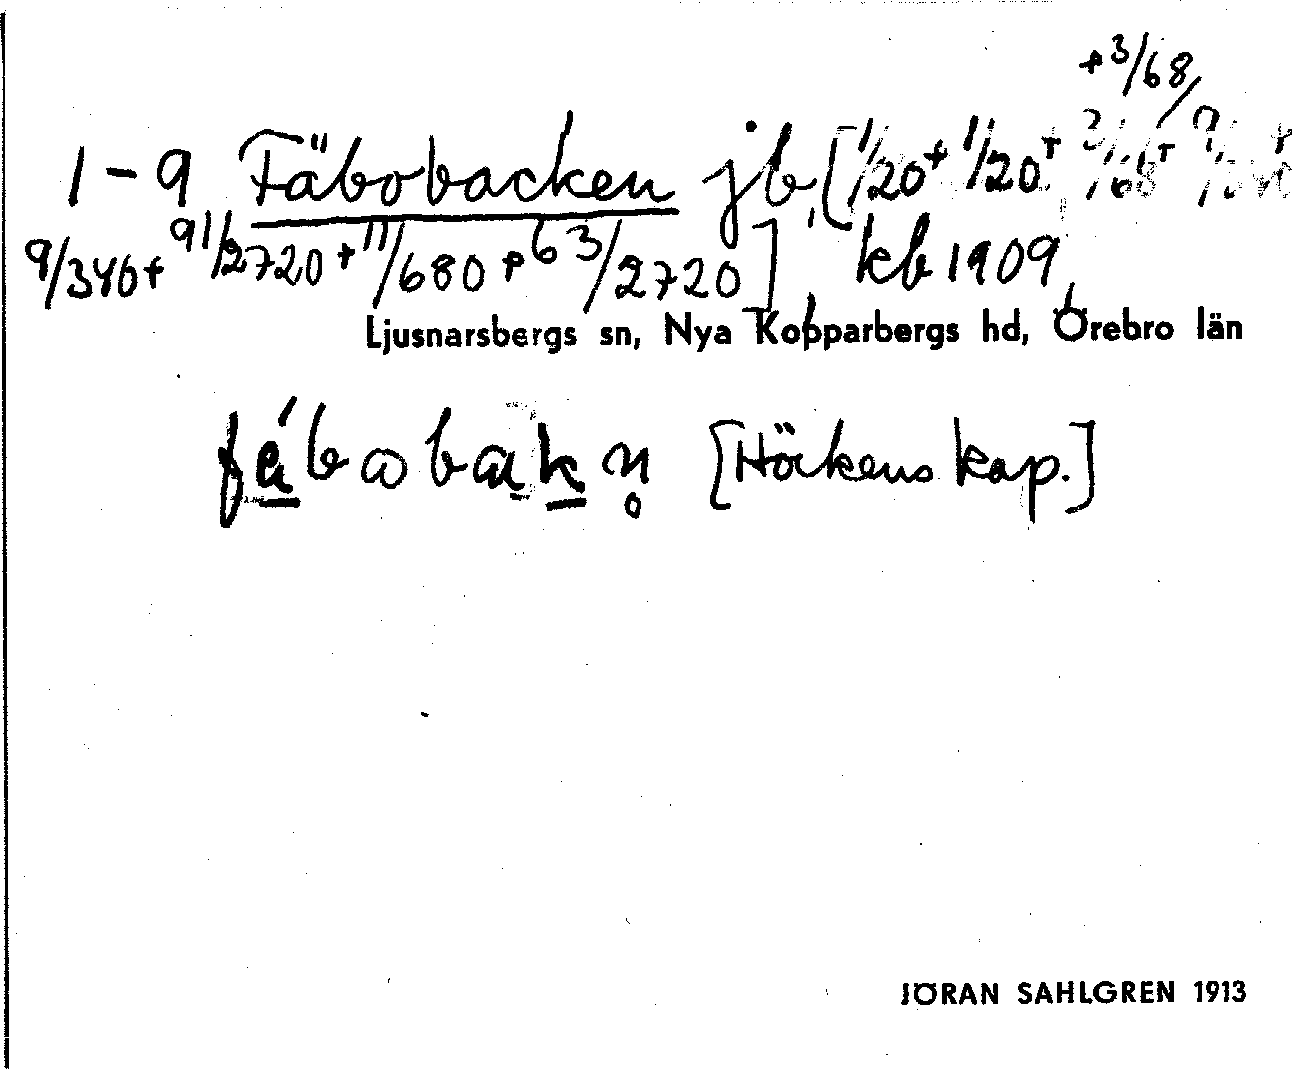 +3/68
1-9 Fäbobacken jb, [1/20 + 1/20 + 3/68 +
9/340 + 911/2720 + 11/680 + 63/2720], kb 1909,
Ljusnarsbergs sn, Nya Kopparbergs hd, Örebro län
[Hörkens kap.]
JÖRAN SAHLGREN 1913